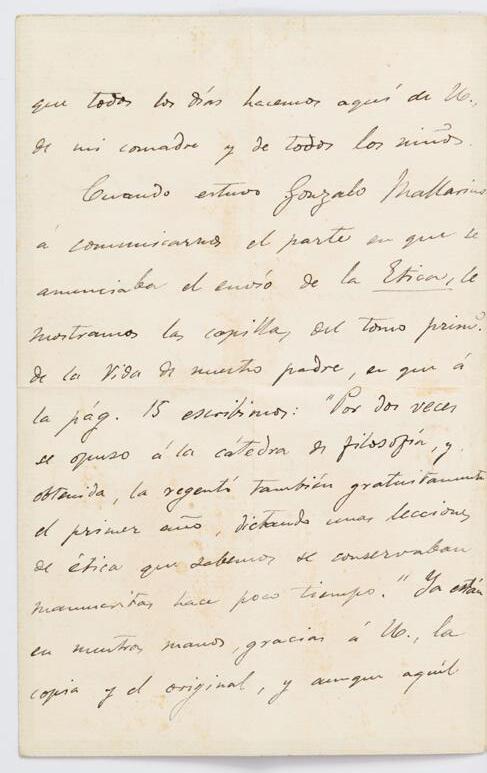 que todos los días hacemos aquí de U.,
de mi comadre y de todos los niños.
Cuando estuvo Gonzalo Mallarino
á comunicarnos el parte en que se
anunciaba el envío de la Etica, le
mostramos las capillas del tomo primo.
de la Vida de nuestro padre, en que á
la pág. 15 escribimos: "Por dos veces
se opuso á la cátedra de filosofía, y,
obtenida, la regentó también gratuitamente
el primer año, dictando unas lecciones
de ética que sabemos se conservaban
manuscritas hace poco tiempo." Ya están
en nuestras manos, gracias á U., la
copia y el original, y aunque aquél